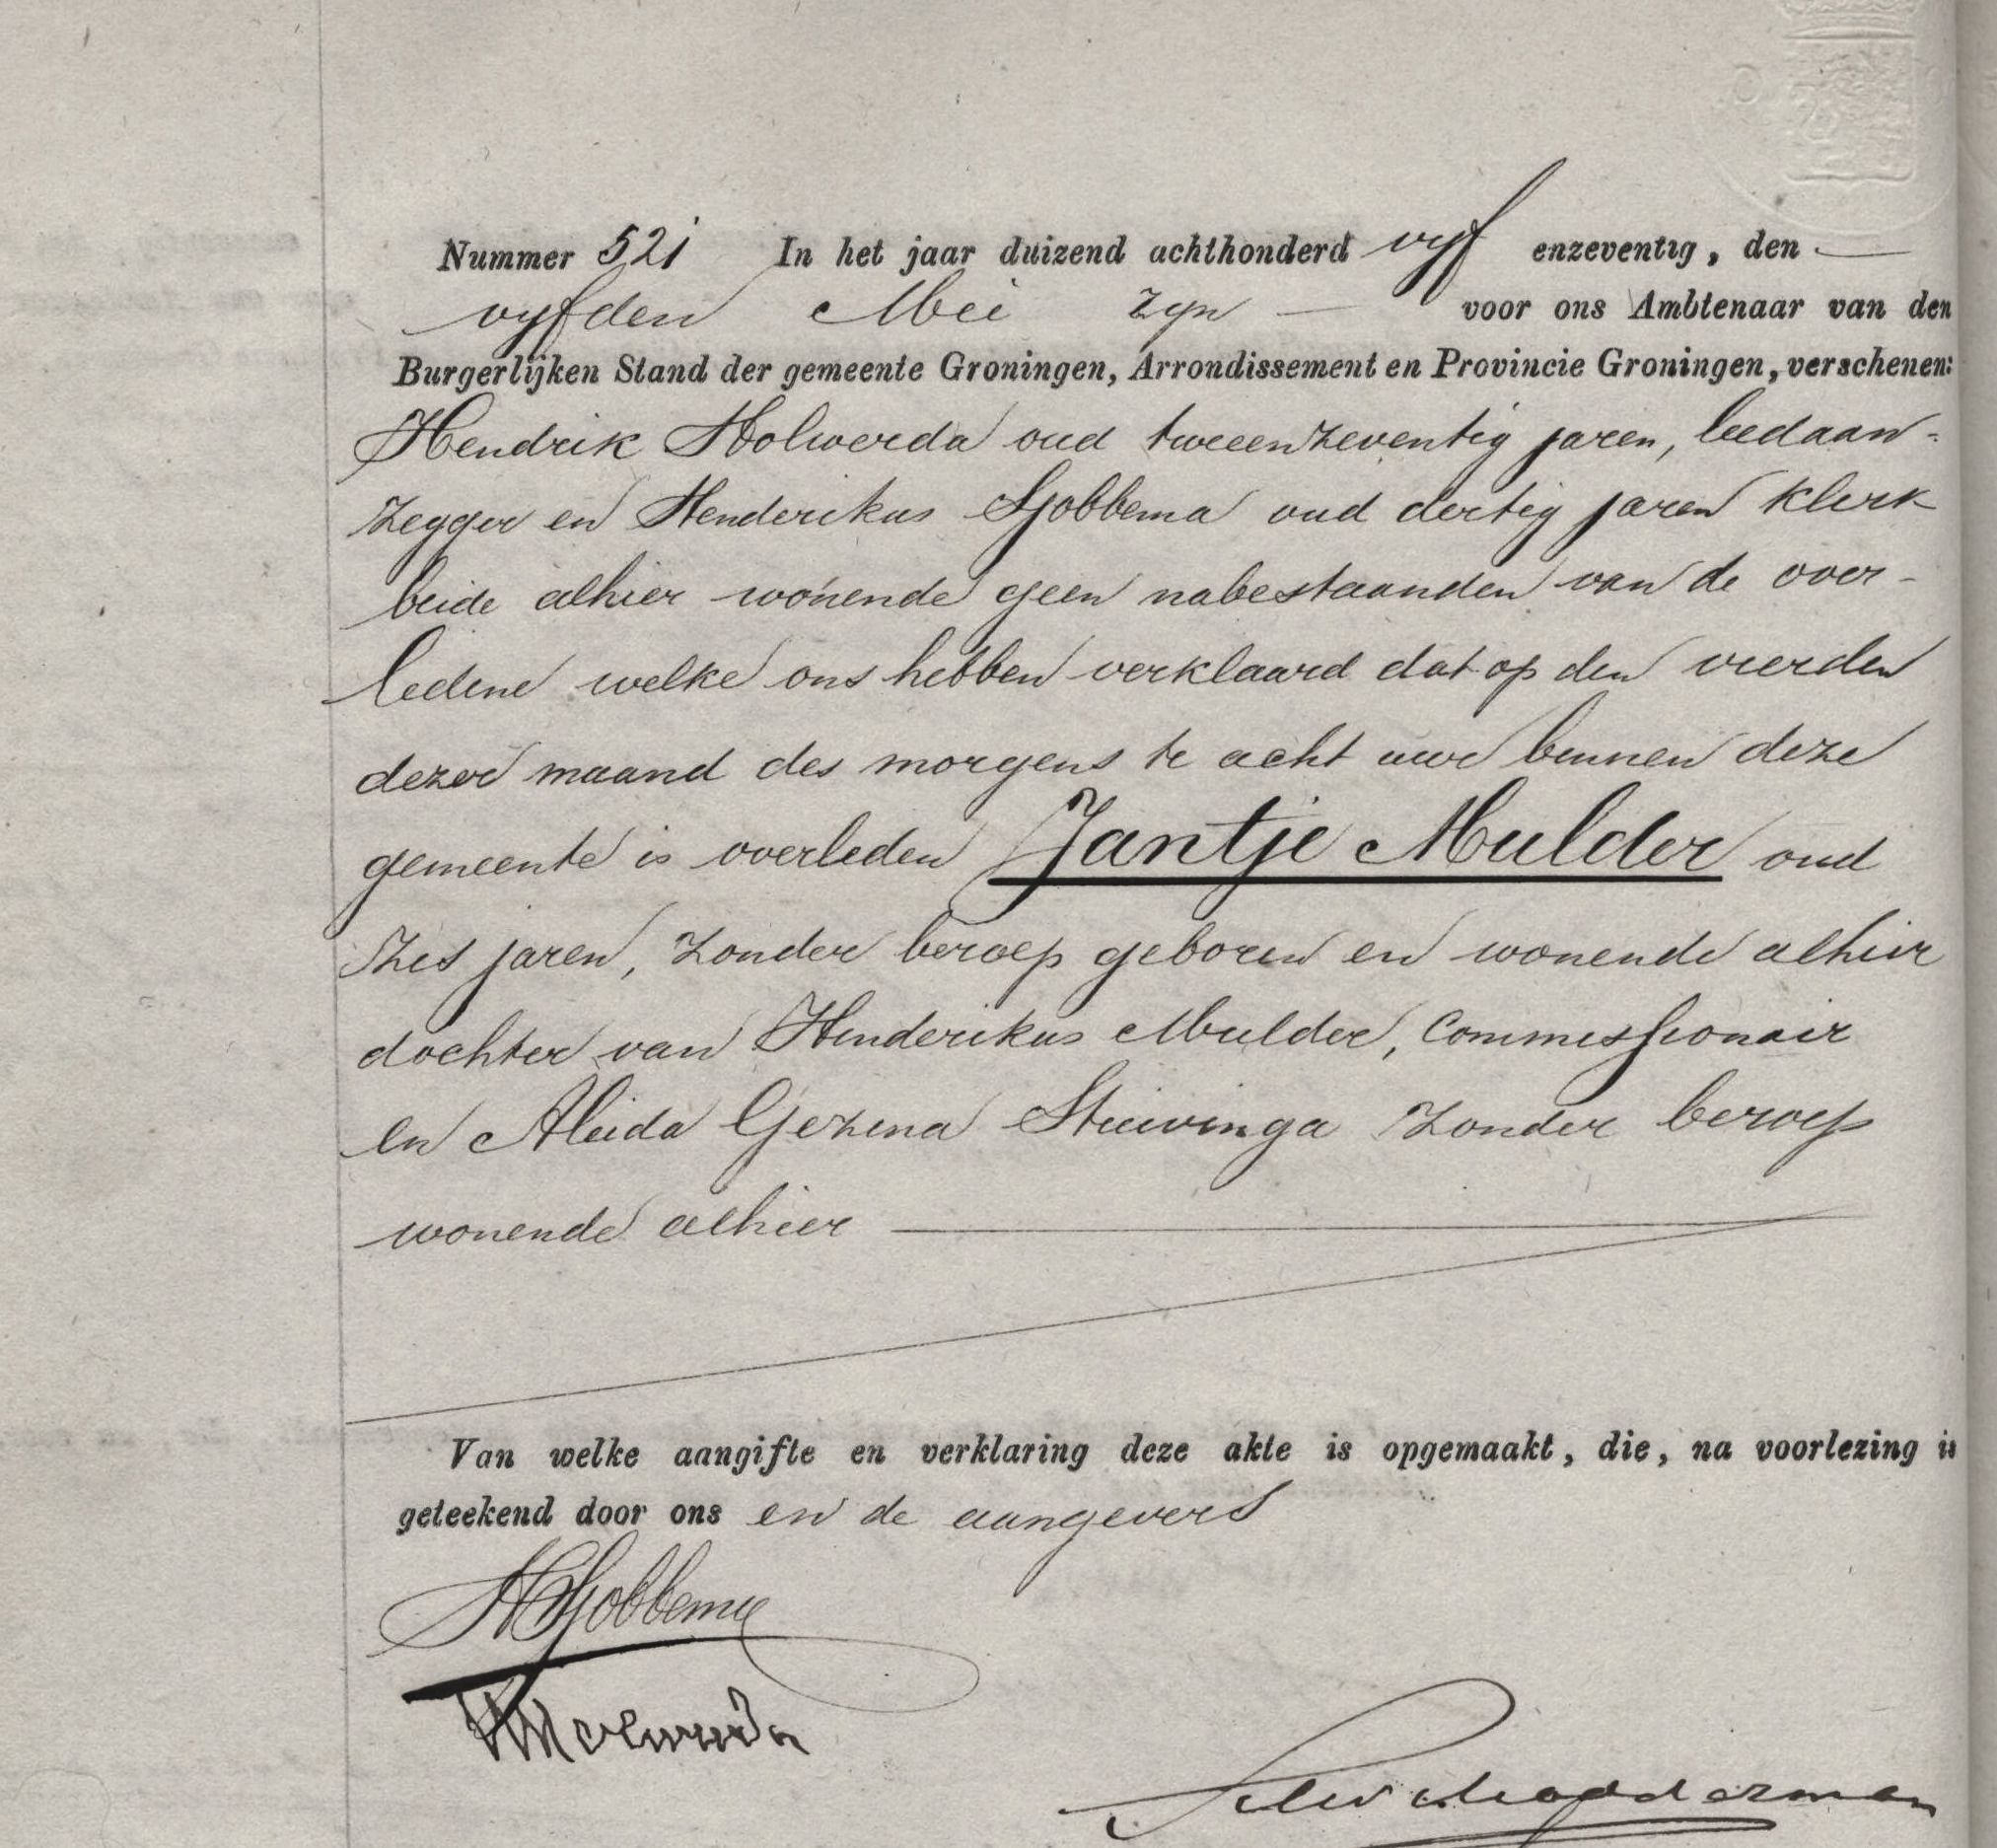 Nummer 521 In het jaar duizend achthonderd vijf enzeventig, den
vijfden Mei zijn voor ons Ambtenaar van den
Burgerlijken Stand der gemeente Groningen, Arrondissement en Provincie Groningen, verschenen:
Hendrik Holwerda oud tweeenzeventig jaren, leedaan-
zegger en Henderikus Sjobbema oud dertig jaren klerk
beide alhier wonende geen nabestaanden van de over-
ledene welke ons hebben verklaard dat op den vierden
dezer maand des morgens te acht uur binnen deze
gemeente is overleden Jantje Mulder oud
zes jaren, zonder beroep geboren en wonende alhier
dochter van Henderikus Mulder, Commissionair
en Aleida Gezina Stuivinga zonder beroep
wonende alhier
Van welke aangifte en verklaring deze akte is opgemaakt, die, na voorlezing is
geteekend door ons en de aangevers
HSjobbema
HHolwerda